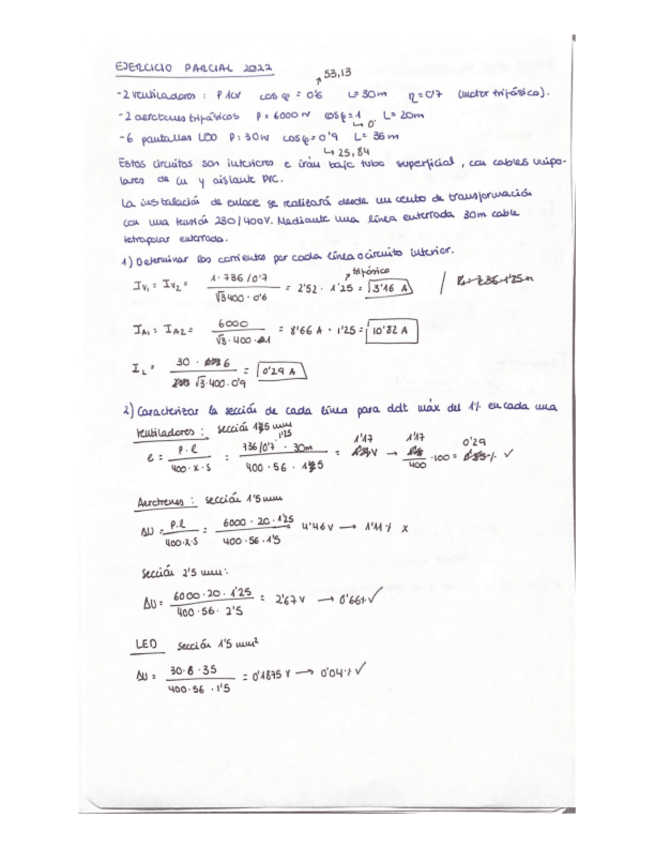 EJERCICIO PARCIAL 2022
53,13
-2 ventiladores : P 1CV cos φ = 0'6 L= 30m η = 0'7 (motor trifásico).
-2 aerotermos trifásicos P = 6000 W cos φ = 1 L= 20m
0°
-6 pantallas LED P: 30W cos φ = 0'9 L= 35m
25,84
Estos circuitos son interiores e irán bajo tubo superficial, con cables unipo-
lares de Cu y aislante PVC.
La instalación de enlace se realizará desde un centro de transformación
con una tensión 230/400V. Mediante una línea enterrada 30m cable
tetrapolar enterrada.
1) Determinar las corrientes por cada línea o circuito interior.
trifásico
IV1 = IV2 = 1·736/0'7 / √3 400·0'6 = 2'52 · 1'25 = 3'16 A
IA1 = IA2 = 6000 / √3·400·1 = 8'66 A · 1'25 = 10'82 A
IL = 30 · 6 / √3·400·0'9 = 0'29 A
2) Caracterizar la sección de cada línea para ddt máx del 1% en cada una
Ventiladores : sección 1'5 mm
e = P·l / 400·x·s = 736/0'7 · 30m · 1'25 / 400·56·1'5 = 1'17 V → 1'17 / 400 ·100 = 0'29 % ✓
Aerotermos : sección 1'5 mm
ΔU = P·l / 400·x·s = 6000·20·1'25 / 400·56·1'5 = 4'46 V → 1'11 % x
Sección 2'5 mm:
ΔU = 6000·20·1'25 / 400·56·2'5 = 2'67 V → 0'66% ✓
LED sección 1'5 mm²
ΔU = 30·6·35 / 400·56·1'5 = 0'1875 V → 0'04% ✓